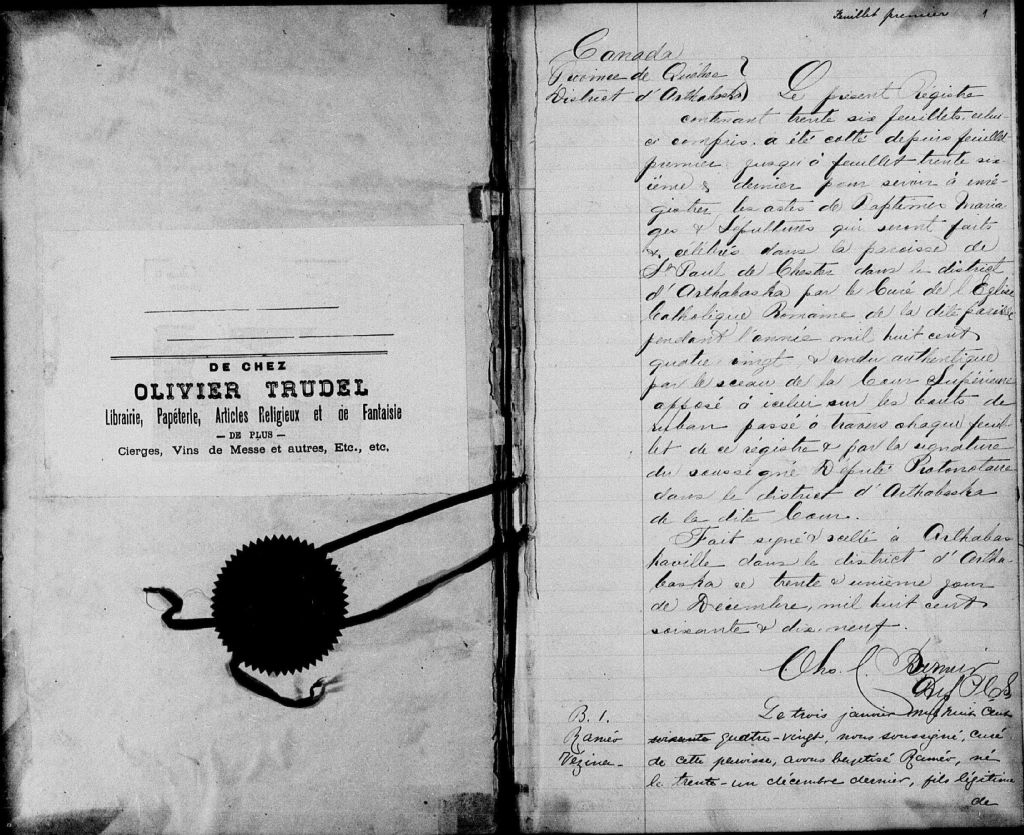 DE CHEZ
OLIVIER TRUDEL
Librairie, Papéterie, Articles Religieux et de Fantaisie
— DE PLUS —
Cierges, Vins de Messe et autres, Etc., etc.
Feuillet premier 1
Canada
Province de Québec
District d'Arthabaska
Le présent Régistre
contenant trente six feuillets, celui
ci compris, a été cotté depuis feuillet
premier jusqu'à feuillet trente six
ième & dernier pour servir à enré-
gistrer les actes de Baptêmes Maria
ges & Sépultures qui seront faits
& célébrés dans la paroisse de
St Paul de Chester dans le district
d'Arthabaska par le Curé de l'Eglise
Catholique Romaine de la dite paroisse
pendant l'année mil huit cent
quatre vingt & rendu authentique
par le sceau de la Cour Supérieure
apposé à icelui sur les bouts de
ruban passé à travers chaque feuil-
let de ce régistre & par la signature
du soussigné Député Protonotaire
dans le district d'Arthabaska
de la dite Cour.
Fait signé & scellé à Arthabas
kaville dans le district d'Artha-
baska ce trente & unième jour
de Décembre, mil huit cent
soixante & dix neuf.
Chs. C. Bernier
Dep P.C.S
B. 1.
Raméo
Vézina
Le trois janvier mil huit cent
soixante quatre-vingt, nous soussigné, curé
de cette paroisse, avons baptisé Raméo, né
le trente-un décembre dernier, fils légitime
de